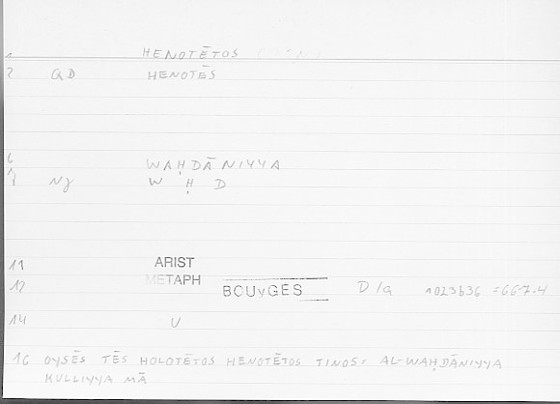 1 HENOTĒTOS
2 QD HENOTĒS
6 WAḤDĀNIYYA
Nj W Ḥ D
11 ARIST
12 METAPH BOUyGES D/a 1023b36 =667.4
14 U
16 OYSĒS TĒS HOLOTĒTOS HENOTĒTOS TINOS: AL-WAḤDĀNIYYA
KULLIYYA MĀ